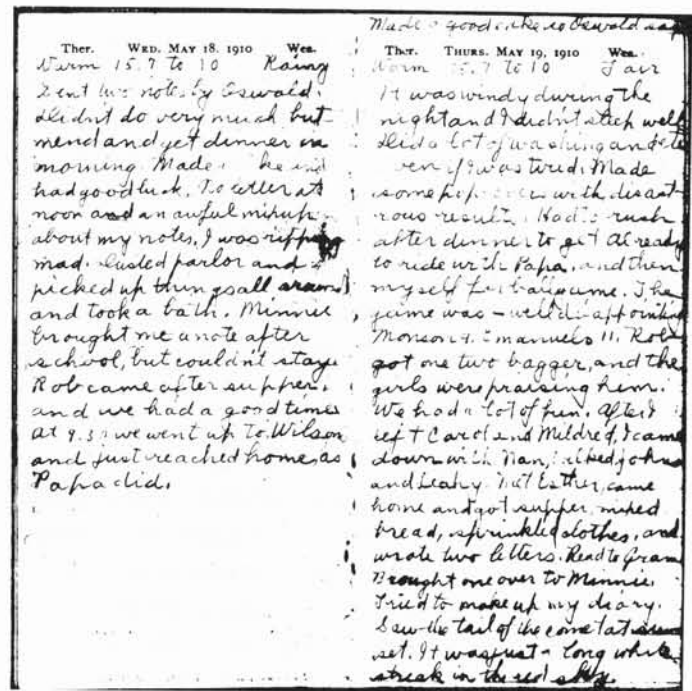 Ther. WED. MAY 18, 1910 Wea.
Warm 15.7 to 10 Rainy
Sent two notes by Oswald.
Didn't do very much but
mend and get dinner in
morning. Made and
had good luck. No letter at
noon and an awful mixup
about my notes, I was ripping
mad. Dusted parlor and
picked up things all around
and took a bath. Minnie
brought me a note after
school, but couldn't stay
Rob came after supper.
and we had a good time
At 9.30 we went up to Wilson
and just reached home, as
Papa did.
Made a good cake so Oswald says
Ther. THURS. MAY 19, 1910 Wea.
Warm 15.7 to 10 Fair
It was windy during the
night and I didn't sleep well
Did a lot of washing and etc
even if I was tired. Made
some pop-overs with disast-
rous results. Had to rush
after dinner to get Al ready
to ride with Papa, and then
myself for ball game. The
game was - well disappointing
Monson 9. Emanuels 11. Rob
got one two bagger, and the
girls were praising him.
We had a lot of fun. After I
left Carol and Mildred, I came
down with Nan,
and Leahy. Met Esther, came
home and got supper, mixed
bread, sprinkled clothes, and
wrote two letters. Read to Gram
Brought one over to Minnie.
Tried to make up my diary.
Saw the tail of the comet at sun
set. It was just a long white
streak in the red sky.